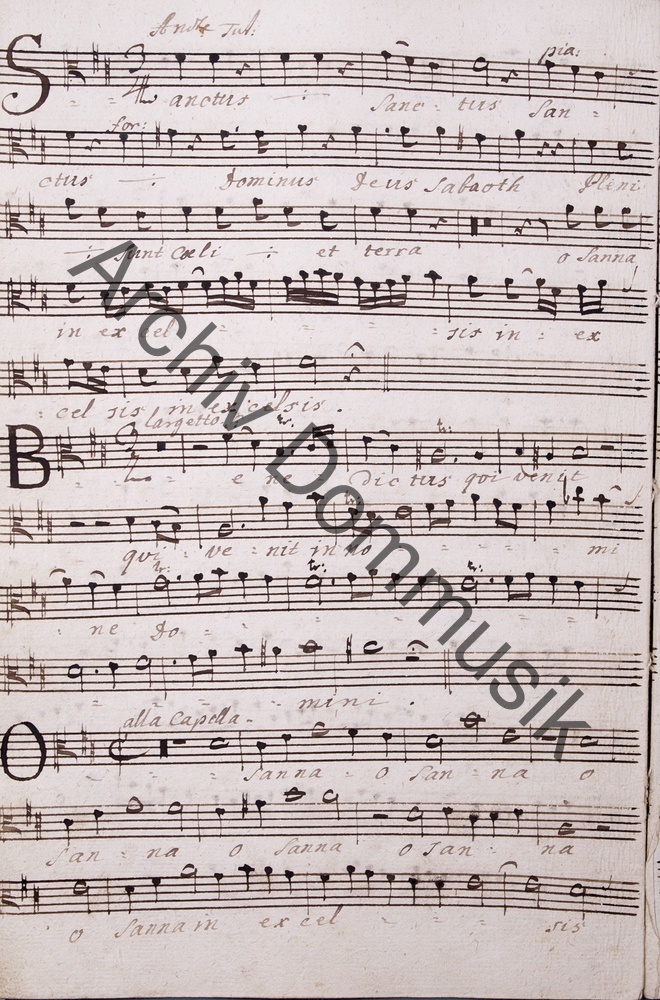 And.te Tut:
pia:
Sanctus Sanc - tus San =
for:
ctus Dominus Deus Sabaoth Pleni
sunt Cœli et terra o Sanna
in ex cel = = = sis in = ex
= cel sis in excelsis.
Largetto
tr.
tr.
B e ne = Dic tus qui venit
tr.
qui = ve = nit in no = = mi
tr. tr. tr.
= ne Do = = = = =
= = = mini.
alla Capella
O = = Sanna = o San = na o
San = na o Sanna o San = na
o Sanna in ex cel = = = sis
Archiv Dommusik